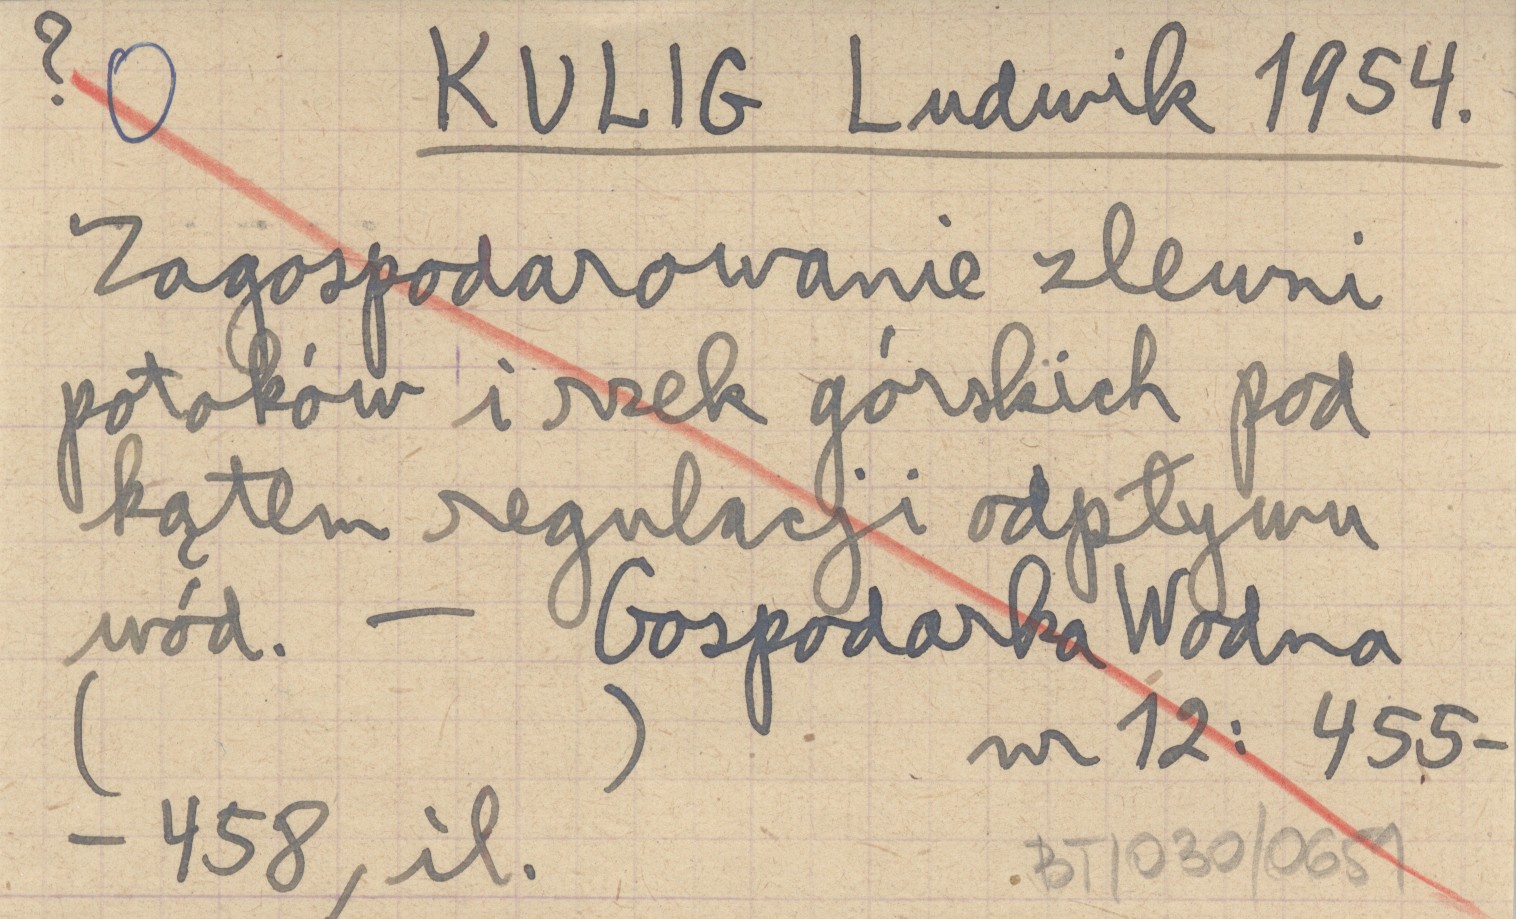 ? O KULIG Ludwik 1954.
Zagospodarowanie zlewni
potoków i rzek górskich pod
kątem regulacji odpływu
wód. — Gospodarka Wodna
( ) nr 12: 455-
- 458, il.
BT/030/0651